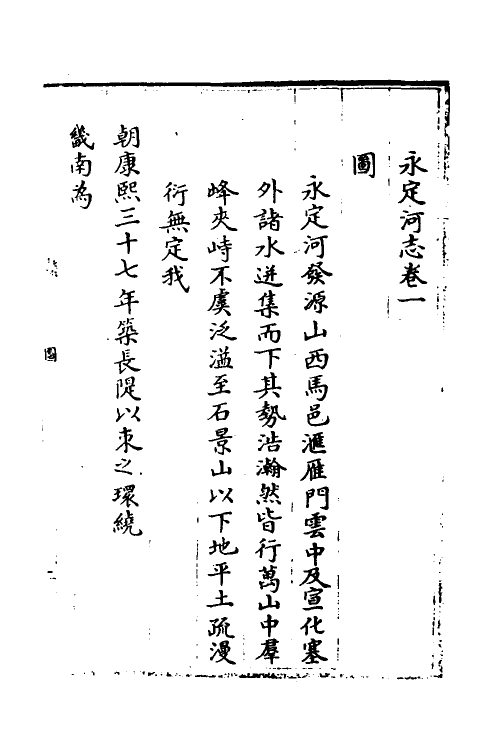 永定河志卷一
圖
永定河發源山西馬邑滙雁門雲中及宣化塞
外諸水迸集而下其勢浩瀚然皆行萬山中羣
峰夾峙不虞泛溢至石景山以下地平土疏漫
衍無定我
朝康熙三十七年築長隄以束之環繞
畿南為
圖